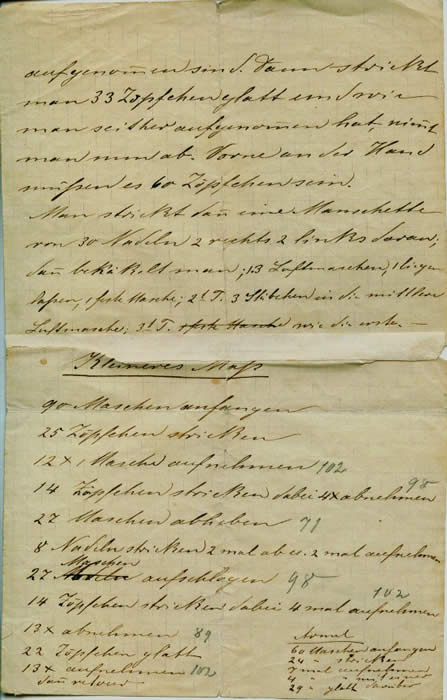 aufgenom̅en sind. Dann strickt
man 33 Zöpfchen glatt und wie
man seither aufgenom̅en hat, nim̅t
man nun ab. Vorne an der Hand
müßen es 60 Zöpfchen sein.
Man strickt dan̅ eine Manschette
von 30 Nadeln 2 rechts 2 links daran,
dan̅ bekäkelt man; 13 Luftmaschen, 1 liegen
laßen, 1 feste Masche; 2t. T. 3 Stäbchen in die mittlere
Luftmasche; 3t. T. wie die erste. —
Kleineres Maß
90 Maschen anfangen
25 Zöpfchen stricken
12 x 1 Masche aufnehmen 102
98
14 Zöpfchen stricken dabei 4x abnehmen
27 Maschen abheben 71
8 Nadeln stricken 2 mal ab u. 2 mal aufnehmen
Maschen
27 aufschlagen 98
102
14 Zöpfchen stricken dabei 4 mal aufnehmen
13x abnehmen 89
22 Zöpfchen glatt
13x aufnehmen 102
dan̅ retour
Ärmel
60 Maschen anfangen
24 " stricken
7 mal aufnehmen
4 "
29 " glatt